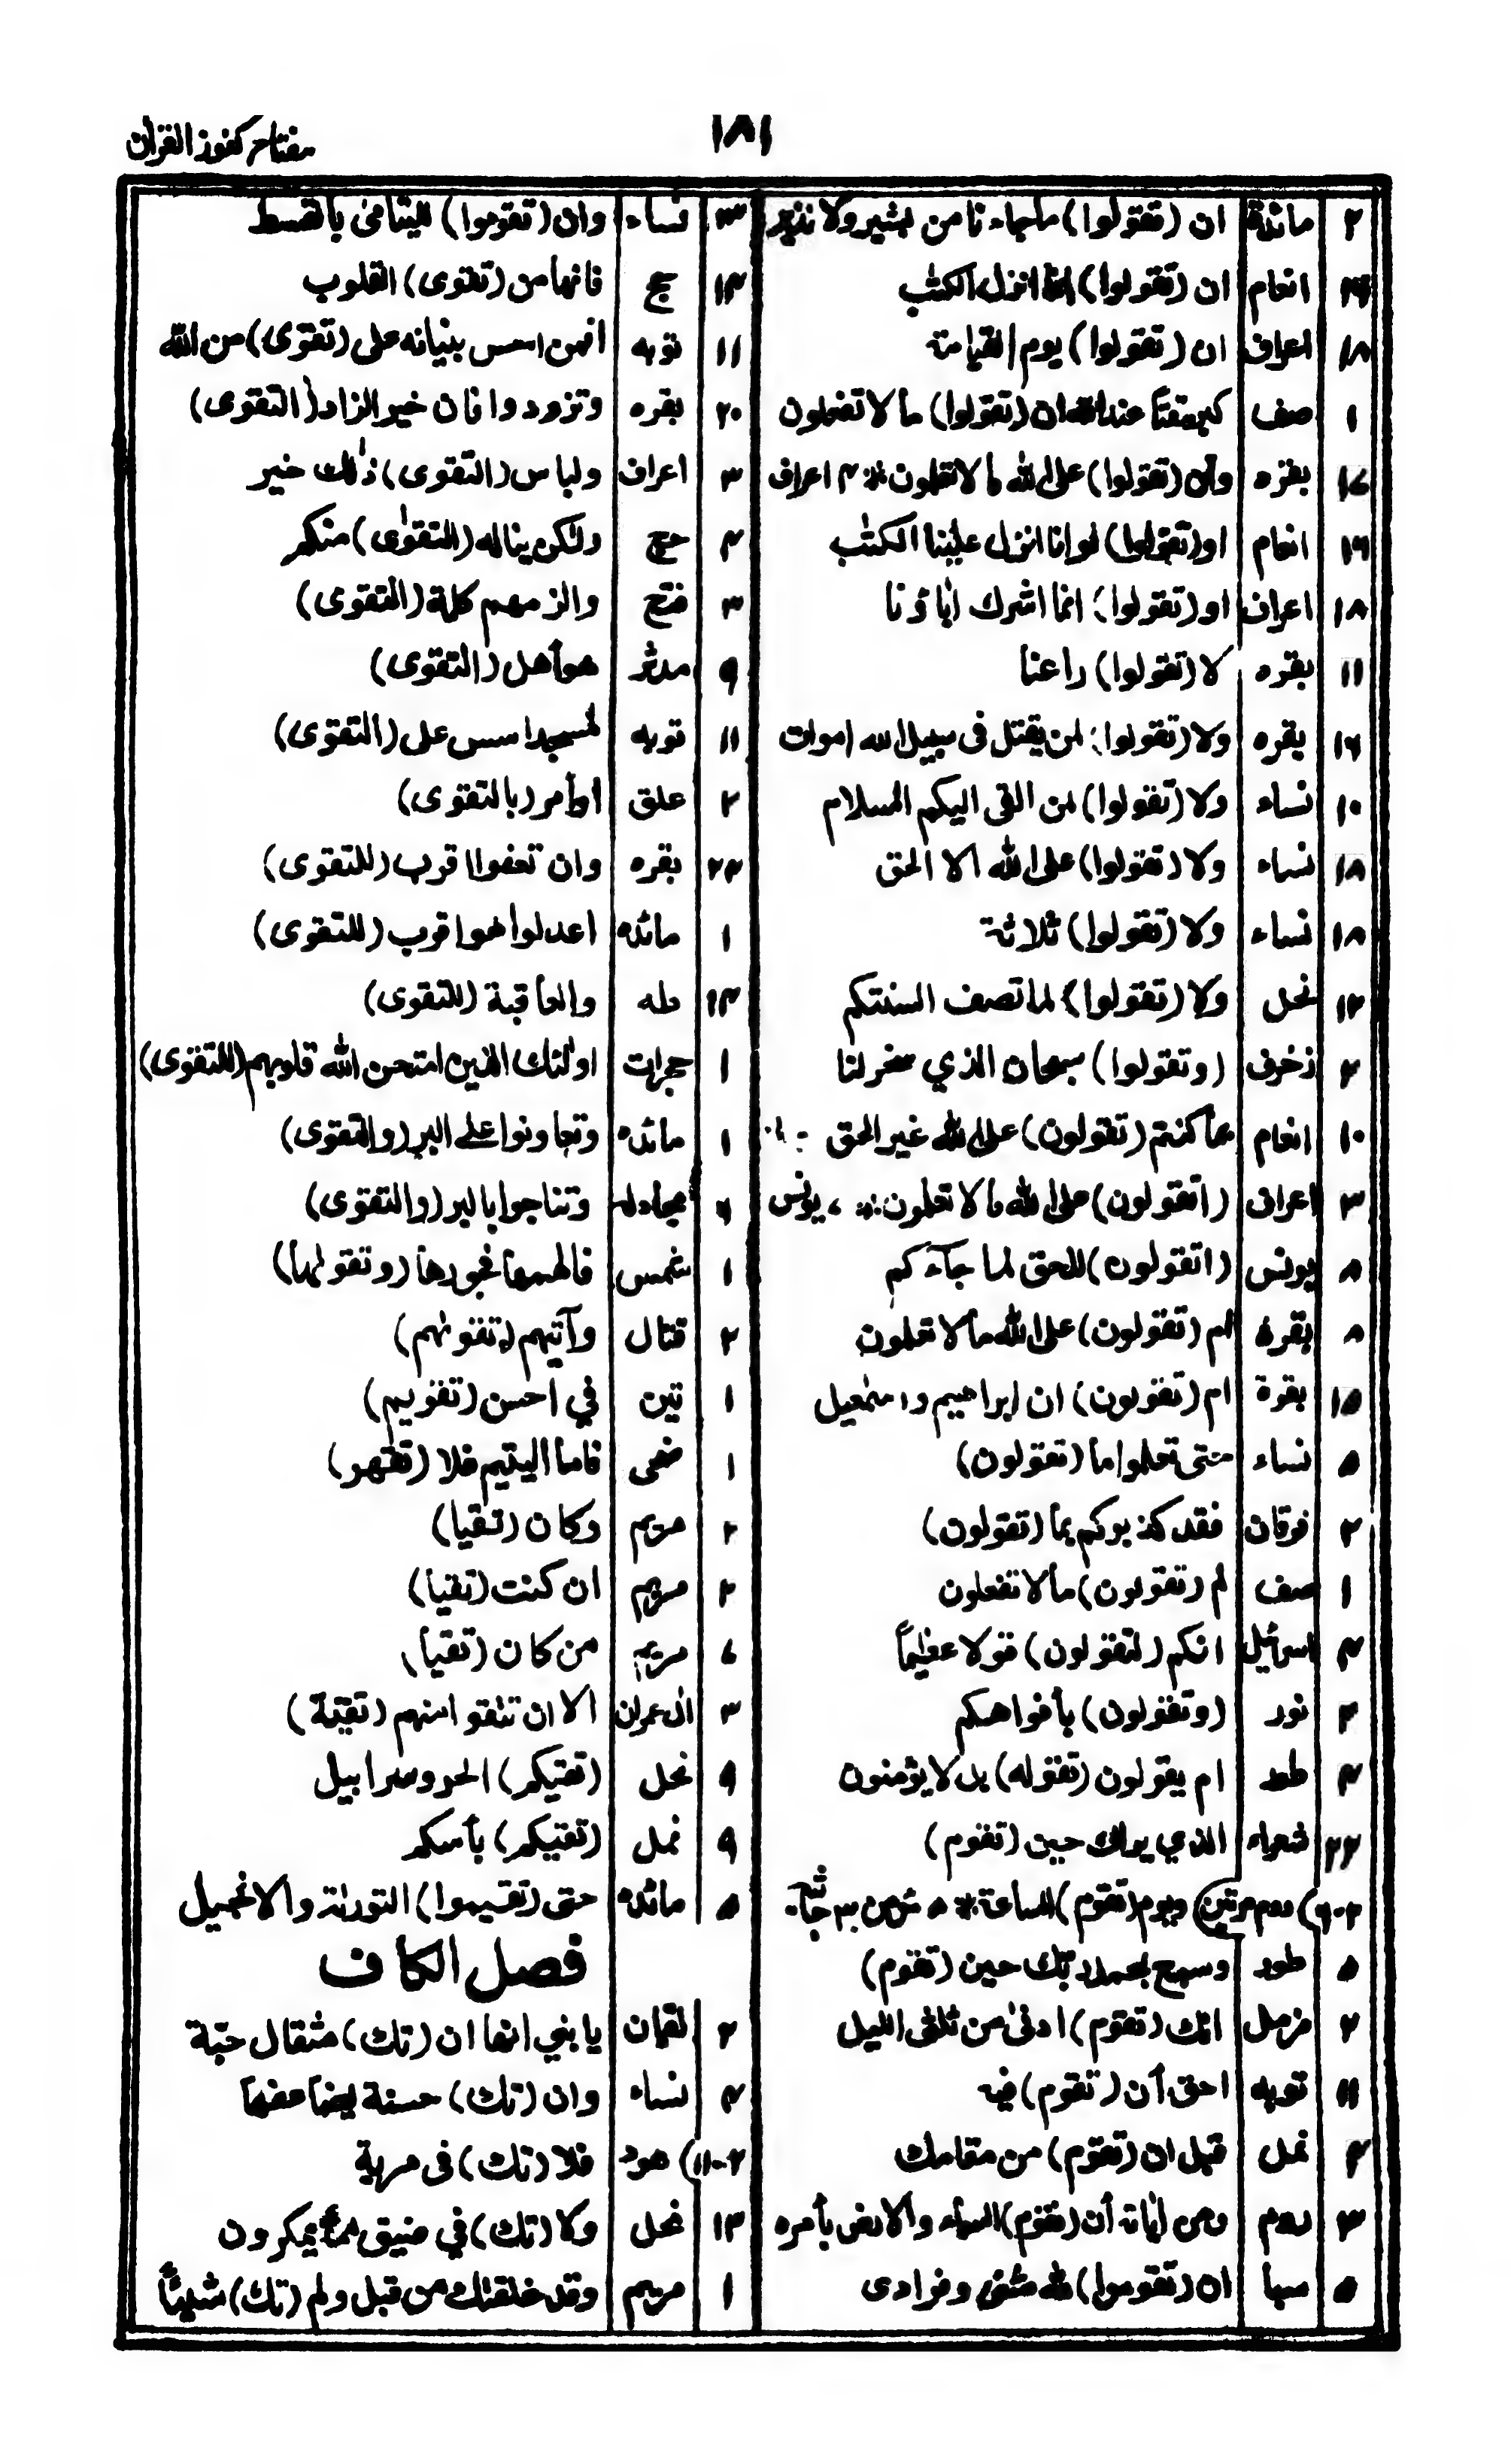 مفتاح كنوز القرآن
١٨١
٢ مائدة ان (تقولوا) ماجاءنا من بشير ولا نذير
انعام ان (تقولوا) انما انزل الكتب
١٨ اعراف ان (تقولوا) يوم القيامة
١ صف كبر مقتا عند الله ان (تقولوا) ما لا تفعلون
بقره وان (تقولوا) على الله ما لا تعلمون ٪ ٣ اعراف
انعام او (تقولوا) لو انا انزل علينا الكتب
١٨ اعراف او (تقولوا) انما اشرك اباؤنا
١١ بقره لا (تقولوا) راعنا
١٦ بقره ولا (تقولوا) لمن يقتل فى سبيل الله اموات
١٠ نساء ولا (تقولوا) لمن القى اليكم السلام
١٨ نساء ولا (تقولوا) على الله الا الحق
١٨ نساء ولا (تقولوا) ثلاثة
١٢ نحل ولا (تقولوا) لما تصف السنتكم
٢ زخرف (وتقولوا) سبحان الذي سخر لنا
١٠ انعام بما كنتم (تقولون) على الله غير الحق
٣ اعراف (اتقولون) على الله ما لا تعلمون ٪ ٧ يونس
٨ يونس (اتقولون) للحق لما جآءكم
٨ بقرة ام (تقولون) على الله ما لا تعلمون
١٥ بقرة ام (تقولون) ان ابراهيم واسمعيل
٥ نساء حتى تعلموا ما (تقولون)
٢ فرقان فقد كذبوكم بما (تقولون)
١ صف لم (تقولون) ما لا تفعلون
٤ اسرائيل انكم (لتقولون) قولا عظيماً
٢ نور (وتقولون) بأفواهكم
٢ طور ام يقولون (تقوله) بل لا يؤمنون
شعراء الذي يراك حين (تقوم)
٢-٦) روم مرتين ويوم (تقوم) الساعة ٪ ٥ مؤمن ٣ جاثية
٥ طور وسبح بحمد ربك حين (تقوم)
٢ مزمل انك (تقوم) ادنىٰ من ثلثى الليل
١١ توبه احق أن (تقوم) فيه
نمل قبل ان (تقوم) من مقامك
٣ روم ومن اياته أن (تقوم) السماء والارض بأمره
٥ سبا ان (تقوموا) لله مثنى وفرادى
نساء وان (تقوموا) لليتامى بالقسط
حج فانها من (تقوى) القلوب
١١ توبه افمن اسس بنيانه على (تقوى) من الله
٢٠ بقره وتزودوا فان خير الزاد (التقوى)
٣ اعراف ولباس (التقوى) ذٰلك خير
حج ولكن يناله (التقوٰى) منكم
٣ فتح والزمهم كلمة (التقوى)
مدثر هو أهل (التقوى)
١١ توبه لمسجد اسس على (التقوى)
٢ علق او أمر (بالتقوى)
بقره وان تعفوا اقرب (للتقوى)
١ مائده اعدلوا هوا قرب (للتقوى)
طه والعاقبة (للتقوى)
١ حجرات اولئك الذين امتحن الله قلوبهم (للتقوى)
١ مائده وتعاونوا على البر (والتقوى)
٢ مجادله وتناجوا بالبر (والتقوى)
١ شمس فالهمها فجورها (وتقولها)
٢ قتال وآتيهم (تقولهم)
١ تين في احسن (تقويم)
١ ضحى فاما اليتيم فلا (تقهر)
٢ مريم وكان (تقيا)
٢ مريم ان كنت (تقيا)
مريم من كان (تقيا)
٣ ال عمران الا ان تتقوا منهم (تقية)
نحل (تقيكم) الحر وسرابيل
نحل (تقيكم) بأسكم
مائده حتى (تقيموا) التوراة والانجيل
فصل الكاف
٢ لقمان يا بني انها ان (تك) مثقال حبّة
نساء وان (تك) حسنة يضاعفها
٢-١١) هود فلا (تك) فى مرية
نحل ولا (تك) في ضيق مما يمكرون
١ مريم وقد خلقتك من قبل ولم (تك) شيئاً